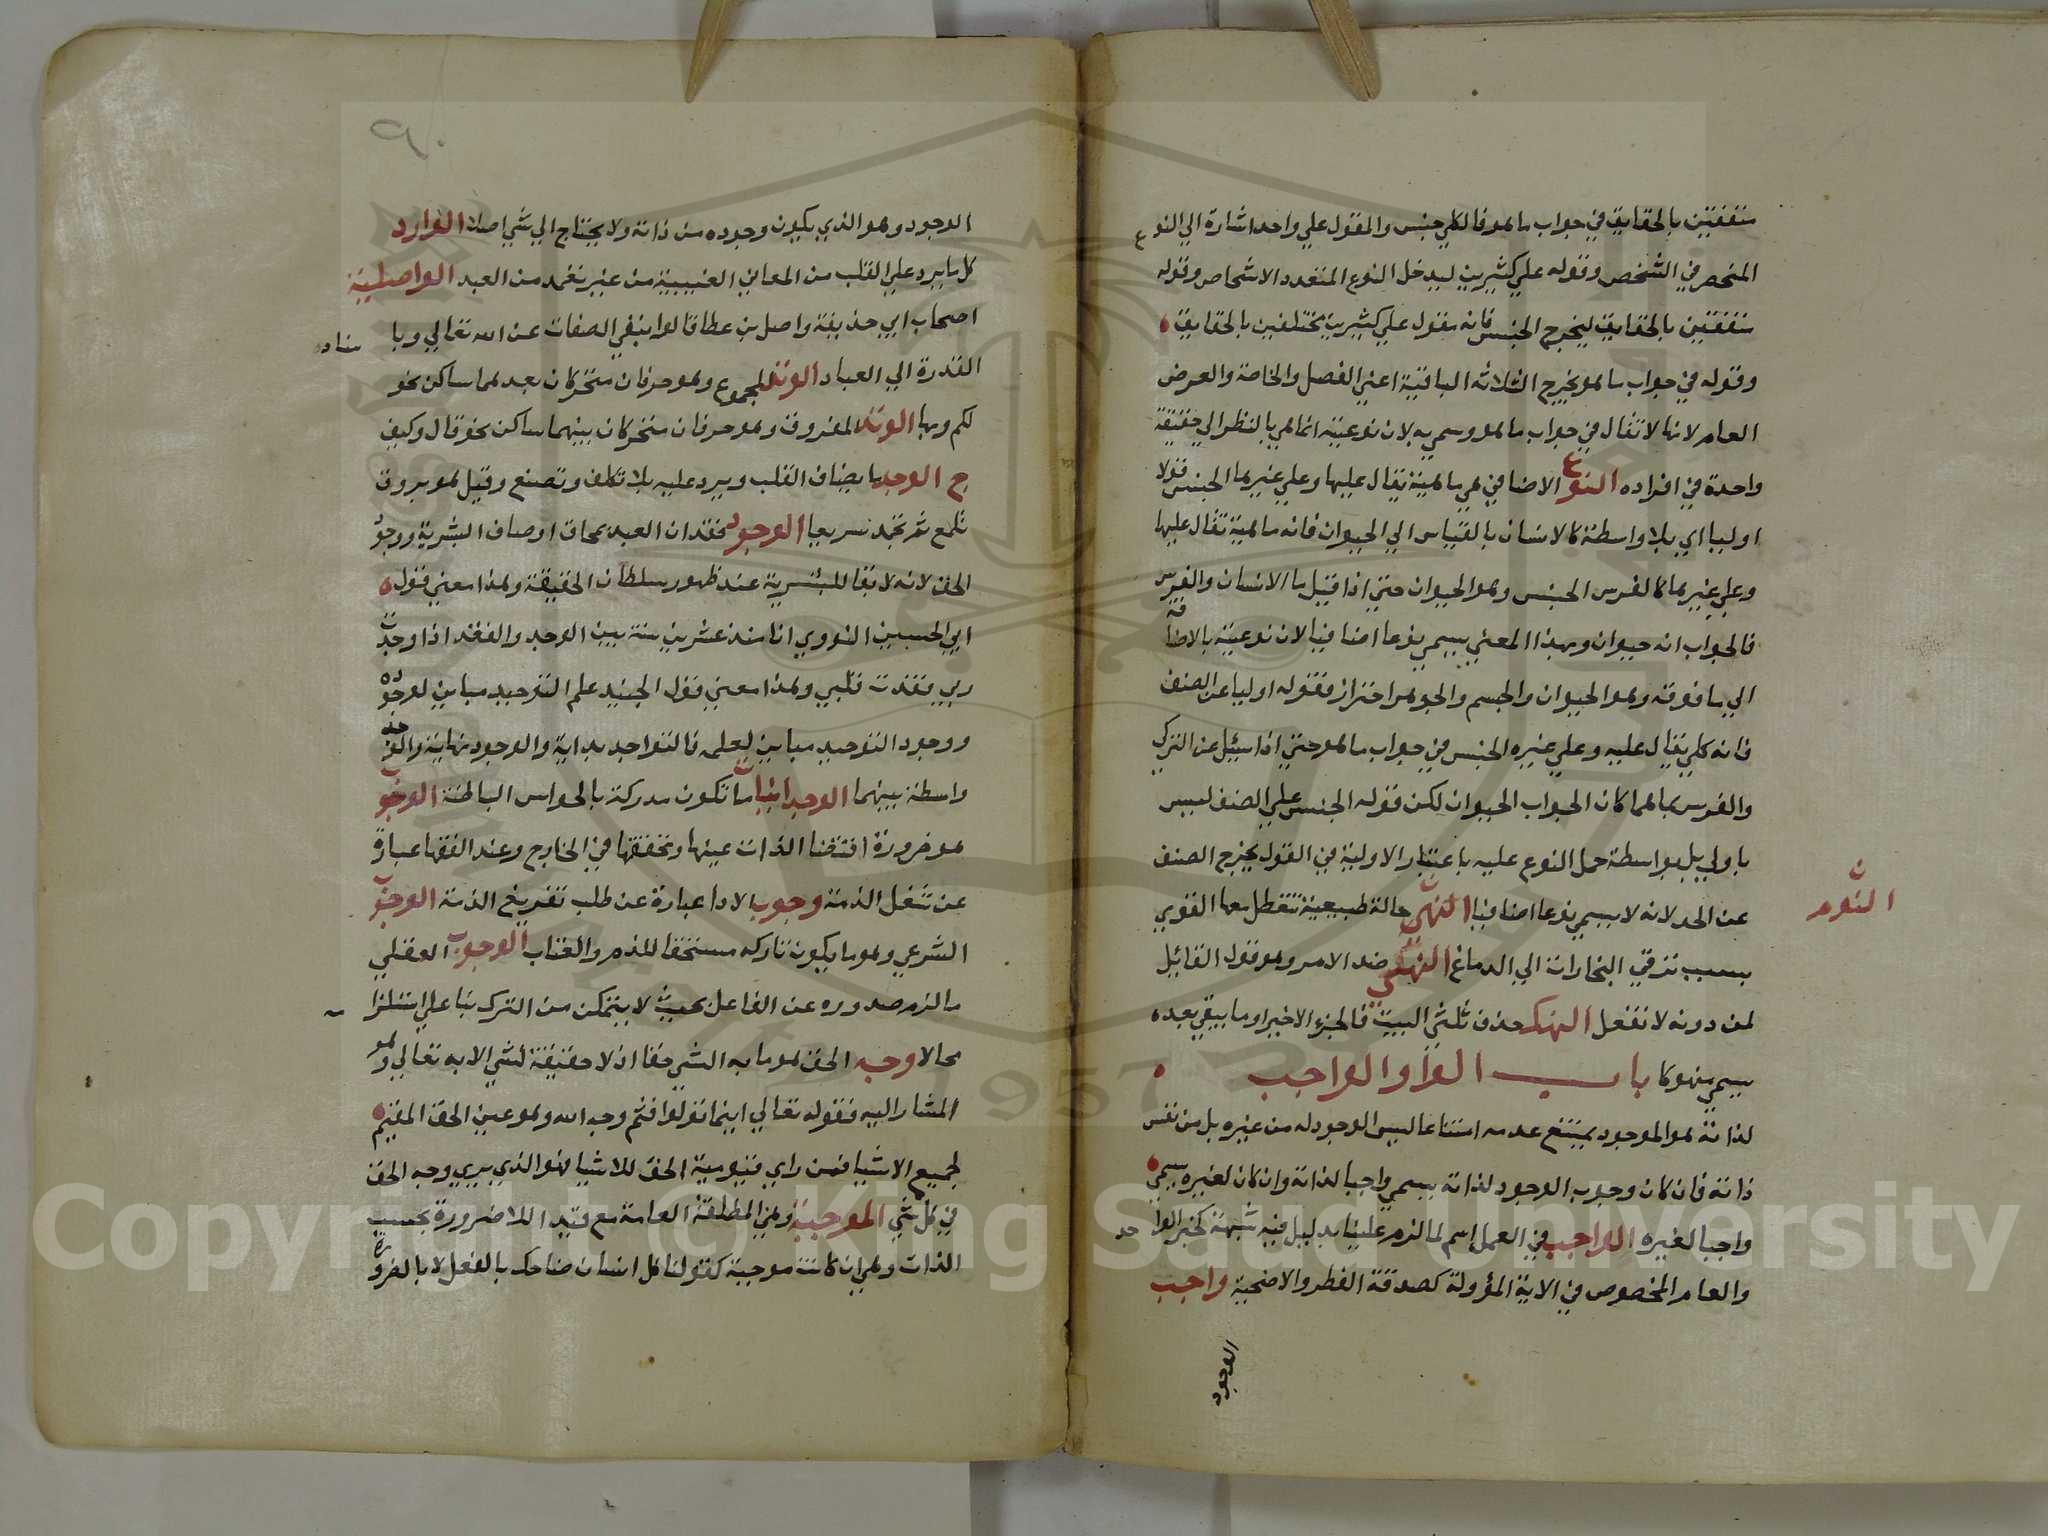 متفقين بالحقايق في جواب ما هو فالكلي جنس والمقول علي واحد اشارة الي النوع
المنحصر في الشخص وقوله علي كثيرين ليدخل النوع المتعدد الاشخاص وقوله
متفقين بالحقايق ليخرج الجنس فانه مقول علي كثيرين مختلفين بالحقايق
وقوله في جواب ما هو يخرج الثلاثه الباقية اعني الفصل والخاصة والعرض
العام لانها لا تقال في جواب ما هو وسمي به لان نوعيته انما هي بالنظر الي حقيقة
واحدة في افراده النوع الاضافي هي ماهية يقال عليها وعلي غيرها الجنس قولا
اوليا اي بلا واسطة كالانسان بالقياس الي الحيوان فانه ماهية تقال عليها
وعلي غيرها كالفرس الجنس وهو الحيوان حتي اذا قيل ما الانسان والفرس
فالجواب انه حيوان وبهذا المعني يسمي نوعا اضافيا لان نوعيته بالاضافة
الي ما فوقه وهو الحيوان والجسم والجوهر احترازا فقوله اوليا عن الصنف
فانه كلي يقال عليه وعلي غيره الجنس في جواب ما هو حتي اذا سئل عن التركي
والفرس بما هما كان الجواب الحيوان لكن قوله الجنس علي الصنف ليس
باولي بل بواسطة حمل النوع عليه باعتبار الاولية في القول يخرج الصنف
النوم
عن الحد لانه لا يسمي نوعا اضافيا النوم حالة طبيعية تتعطل معها القوي
بسبب ترقي البخارات الي الدماغ النهي ضد الامر وهو قول القائيل
لمن دونه لا تفعل النهك حذف ثلثي البيت فالجزء الاخير او ما بيقي بعده
يسمي منهوكا باب الواو الواجب
لذاته هو الموجود يمتنع عدمه امتناعا ليس الوجود له من غيره بل من نفس
ذاته فان كان وجوب الوجود لذاته يسمي واجبا لذاته وان كان لغيره سمي
واجبا لغيره الواجب في العمل اسم لما لزم علينا بدليل فيه شبهة كخبر الواحد
والعام المخصوص في الاية المؤولة كصدقة الفطر والاضحية واجب
الوجود
٩٠
الوجود وهو الذي يكون وجوده من ذاته ولا يحتاج الي شي اصلا الوارد
كل ما يرد علي القلب من المعاني الغيبية من غير تعمد من العبد الواصلية
اصحاب ابي حذيفة واصل بن عطا قالوا بنفي الصفات عن الله تعالي وبا سناد
القدرة الي العباد الوتد المجموع وهو حرفان متحركان بعدهما ساكن نحو
لكم وبها الوتد المفروق وهو حرفان متحركان بينهما ساكن نحو قال وكيف
ج الوجد ما يصادف القلب ويرد عليه بلا تكلف وتصنع وقيل هو بروق
تلمع ثم تخمد سريعا الوجود فقدان العبد بمحاق اوصاف البشرية ووجود
الحق لانه لا بقا للبشرية عند ظهور سلطان الحقيقة وهذا معني قول
ابي الحسين النووي انا منذ عشرين سنة بين الوجد والفقد اذا وجدت
ربي فقدت قلبي وهذا معني قول الجنيد علم التوحيد مباين لوجوده
ووجود التوحيد مباين لعلمه فالتواجد بداية والوجود نهاية والوجد
واسطة بينهما الوجدانيات ما تكون مدركة بالحواس الباطنة الوجوب
هو ضرورة اقتضا الذات عينها وتحققها في الخارج وعند الفقها عبارة
عن شغل الذمة وجوب الادا عبارة عن طلب تفريغ الذمة الوجوب
الشرعي وهو ما يكون تاركه مستحقا للذم والعقاب الوجوب العقلي
ما لزم صدوره عن الفاعل بحيث لا يتمكن من الترك بنا علي استلزا م
محالا وجه الحق هو ما به الشي حقا اذ لا حقيقة لشي الا به تعالي وهو
المشار اليه فقوله تعالي اينما تولوا فثم وجه الله وهو عين الحق المقيم
لجميع الاشيا فمن راي قيومية الحق للاشيا فهو الذي يري وجه الحق
في كل شي الموجبة وهي المطلقة العامة مع قيد اللا ضرورة بحسب
الذات وهي ان كانت موجبة كقولنا كل انسان ضاحك بالفعل لا بالضرورة
Copyright © King Saud University
1957